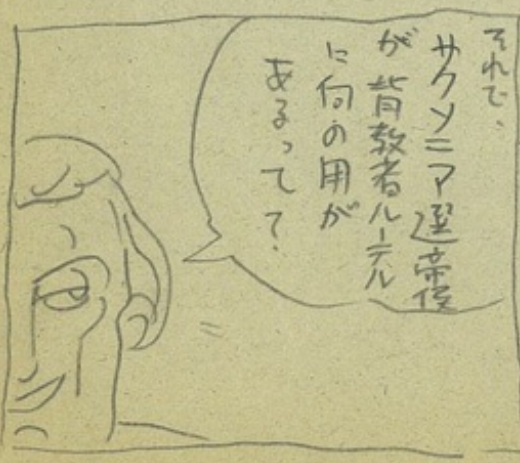 それで、
サクソニア選帝侯
が背教者ルーテル
に何の用が
あるって?